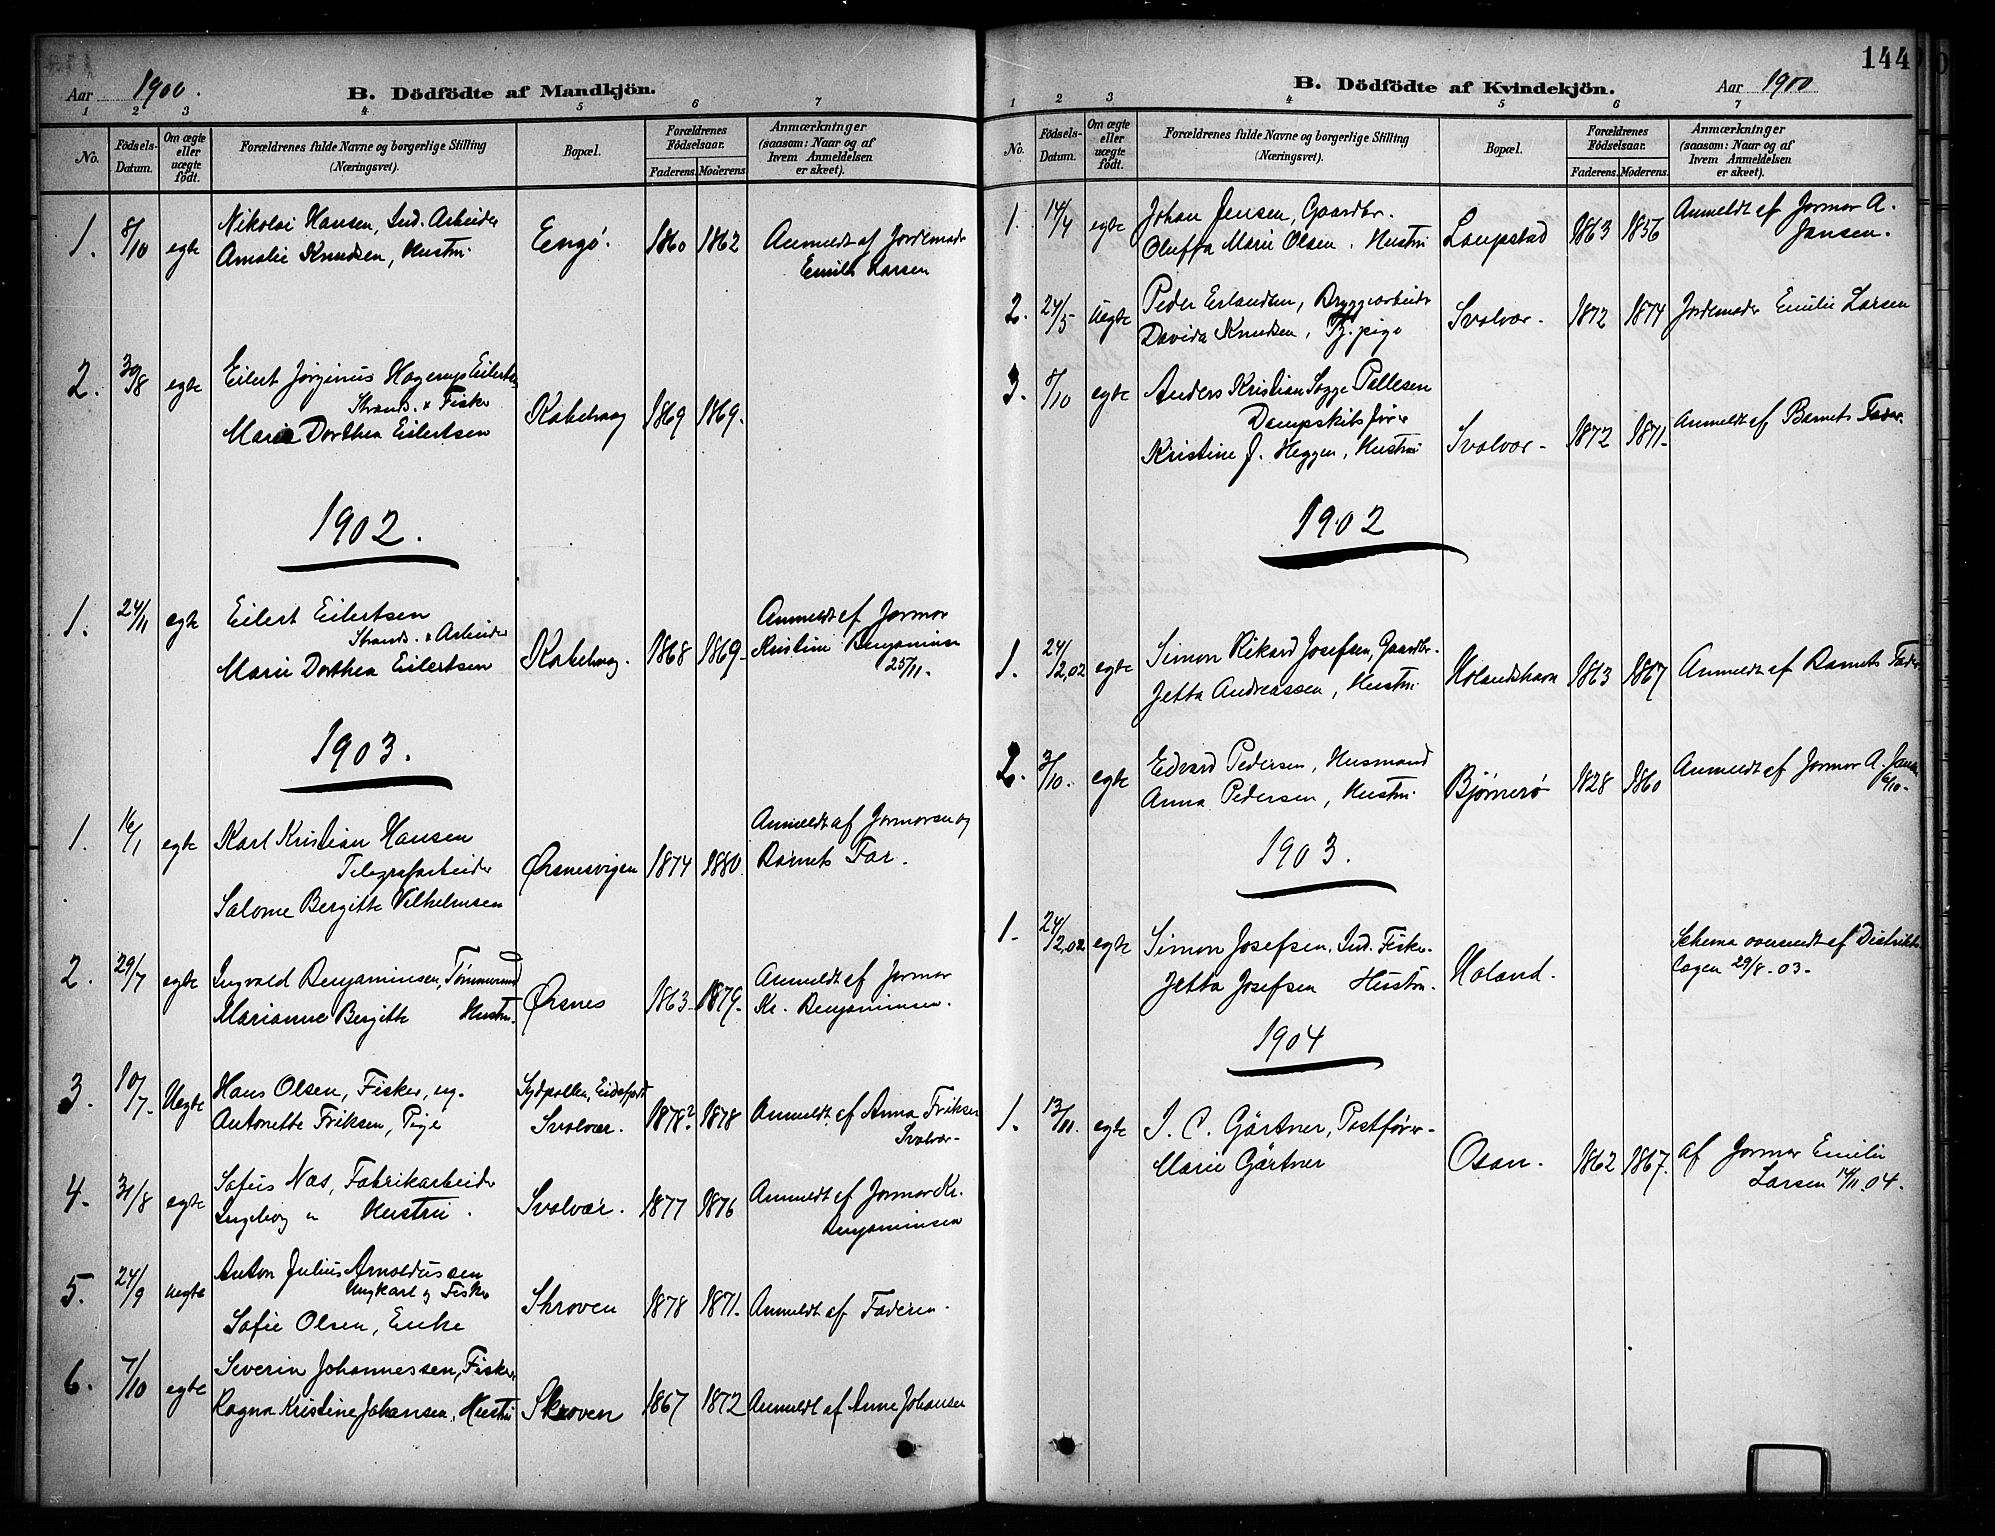 Aar 1900.
B. Dödfödte af Mandkjön.
1 2 3 4 5 6 7
No.
Födsels-Datum.
Om ægte eller uægte födt.
Forældrenes fulde Navne og borgerlige Stilling (Næringsvei).
Bopæl.
Forældrenes Födselsaar.
Faderens. Moderens
Anmærkninger (saasom: Naar og af hvem Anmeldelsen er skeet).
1. 8/10 egte Nikolai Hansen, Ind. Arbeider
Amalie Knudsen, Hustru Engø. 1860 1862 Anmeldt af Jordemoder
Emilie Larsen
2. 30/8 egte Eilert Jørginus Hagerup Eilertsen
Strands. & Fisker
Marie Dorthea Eilertsen Kabelvaag 1869 1869.
1902.
1. 24/11 egte Eilert Eilertsen
Strands. & Arbeider
Marie Dorthea Eilertsen Kabelvaag. 1868 1869.
Anmeldt af Jormor
Kristine Benjaminsen
25/11.
1903.
1. 16/1 egte Karl Kristian Hansen
Telegrafarbeider
Salome Bergitte Vilhelmsen Ørsnesvigen 1874 1880
Anmeldt af Jormoren og
Barnets Far.
2. 29/7 egte Ingvald Benjaminsen, Tømmermand
Marianne Bergitte Hustru. Ørsnes 1863 1879.
Anmeldt af Jormor
Kr. Benjaminsen.
3. 10/7. Uegte Hans Olsen, Fisker, ug.
Antonette Friksen, Pige
Sydpollen, Eidsfjord
Svolvær. 1878? 1878 Anmeldt af Anna Friksen
Svolvær
4. 31/8 egte Sofus Næs, Fabrikarbeider
Ingeborg " Hustru. Svolvær. 1877 1876 Anmeldt af Jormor Kr.
Benjaminsen
5. 24/9 uegte Anton Julius Arnoldussen
Ungkarl og Fisker
Sofie Olsen, Enke Skroven 1878 1871. Anmeldt af Faderen.
6. 7/10 egte Severin Johannessen, Fisker,
Ragna Kristine Johansen, Hustru Skroven 1867 1872 Anmeldt af Anne Johansen
144
B. Dödfödte af Kvindekjön.
Aar 1900
1 2 3 4 5 6 7
No.
Födsels-Datum.
Om ægte eller uægte födt.
Forældrenes fulde Navne og borgerlige Stilling (Næringsvei).
Bopæl.
Forældrenes Födselsaar.
Faderens. Moderens.
Anmærkninger (saasom: Naar og af hvem Anmeldelsen er skeet).
1. 14/4 egte Johan Jensen, Gaardbr.
Oluffa Marie Olsen, Hustru Laupstad 1863 1856 Anmeldt af Jormor A.
Jansen.
2. 24/5 Uegte Peder Erlandsen, Bryggearbeider
Davida Knudsen, Tj.pige Svolvær. 1872 1874 Jordemoder Emilie Larsen
3. 8/10 egte Anders Kristian Sogge Pallesen
Dampskibsfører
Kristine J. Heggen, Hustru Svolvær 1872 1871. Anmeldt af Barnets Fader.
1902
1. 24/12,02 egte Simon Rikard Josefsen, Gaardbr.
Jetta Andreassen, Hustru Holandshavn 1863 1867 Anmeldt af Barnets Fader
2. 3/10. egte Edvard Pedersen, Husmand
Anna Pedersen, Hustru Bjørnerø 1828 1860 Anmeldt af Jormor A. Jansen
6/10.
1903.
1. 24/12,02 egte Simon Josefsen, Ind. Fisker.
Jetta Josefsen Hustru. Holand.
Schema oversendt af Distrikts
lægen 29/8.03.
1904
1. 13/11. egte I. C. Gärtner, Postfører
Marie Gärtner Osan. 1862 1867. af Jormor Emilie
Larsen 14/11.04.